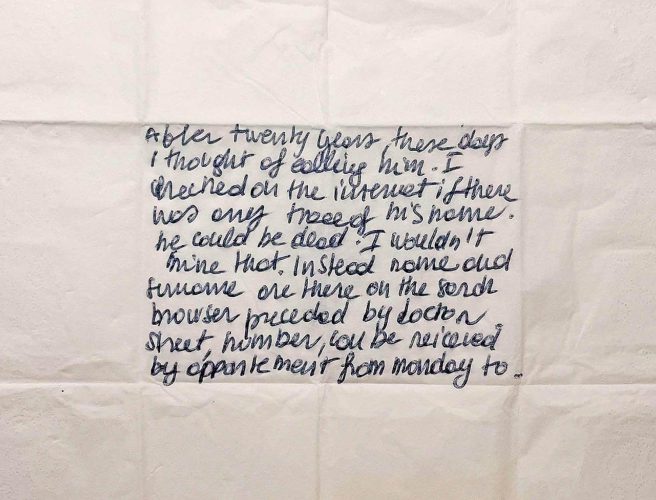 After twenty years, these days
I thought of calling him. I
checked on the internet if there
was any trace of his name.
he could be dead. I wouldn't
mine that. Instead name and
surname are there on the serch
browser preceded by doctor.
street, number, can be reiceved
by appointement from monday to.